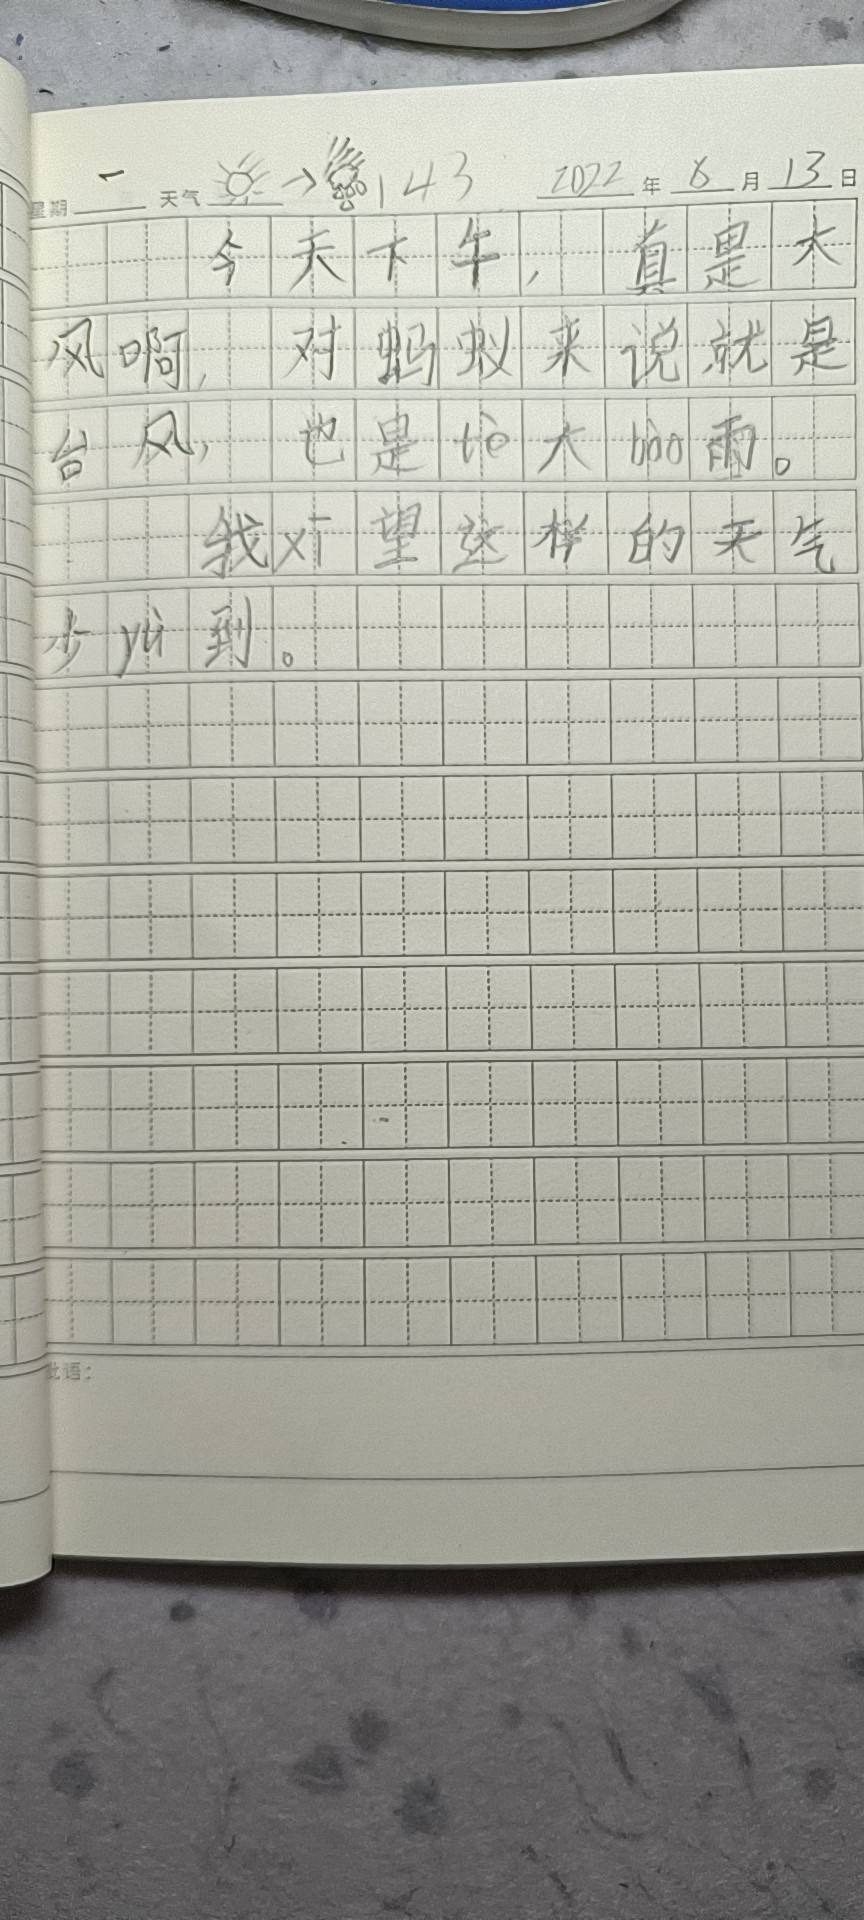 星期 一 天气 143 2022 年 6 月 13 日
今天下午，真是大
风啊，对蚂蚁来说就是
台风，也是tè大bào雨。
我xī望这样的天气
少yù到。
批语：